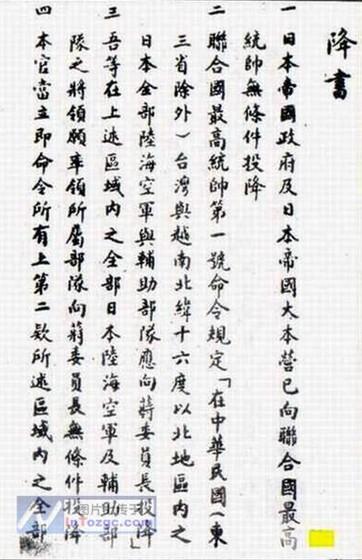 降書
一 日本帝國政府及日本帝國大本營已向聯合國最高
統帥無條件投降
二 聯合國最高統帥第一號命令規定「在中華民國(東
三省除外)台灣與越南北緯十六度以北地區內之
日本全部陸海空軍與輔助部隊應向蔣委員長投降」
三 吾等在上述區域內之全部日本陸海空軍及輔助部
隊之將領願率領所屬部隊向蔣委員長無條件投降
四 本官當立即命令所有上第二款所述區域內之全部
InTozgc.com